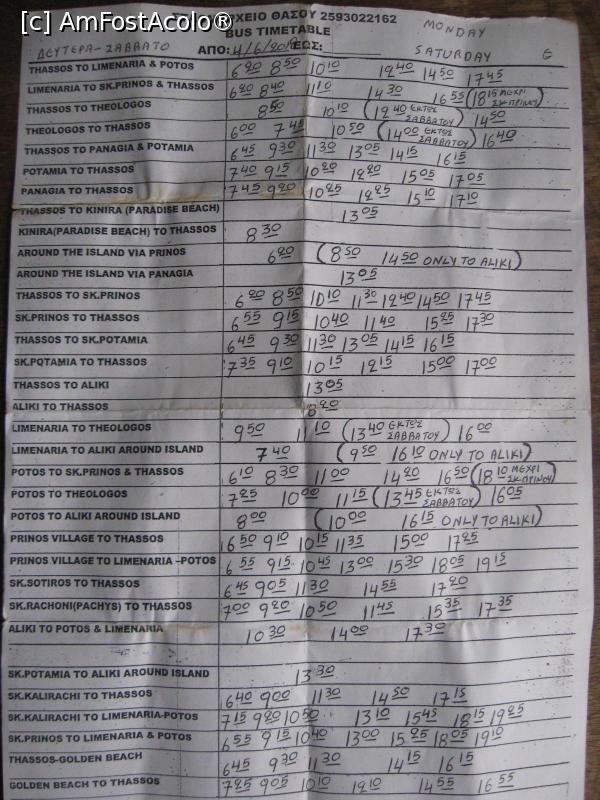 [c] AmFostAcolo®
ΧΕΙΟ ΘΑΣΟΥ 2593022162
MONDAY
ΔΕΥΤΕΡΑ-ΣΑΒΒΑΤΟ BUS TIMETABLE SATURDAY
ΑΠΟ: 4/6/20 ΕΩΣ:
THASSOS TO LIMENARIA & POTOS 6 20 8 50 10 10 12 40 14 50 17 45
LIMENARIA TO SK.PRINOS & THASSOS 6 20 8 40 11 10 14 30 16 55 (18 15 ΜΕΧΡΙ ΣΚ.ΠΡΙΝΟΥ)
THASSOS TO THEOLOGOS 8 50 10 10 (12 40 ΕΚΤΟΣ ΣΑΒΒΑΤΟΥ) 14 50
THEOLOGOS TO THASSOS 6 00 7 45 10 50 (14 00 ΕΚΤΟΣ ΣΑΒΒΑΤΟΥ) 16 40
THASSOS TO PANAGIA & POTAMIA 6 45 9 30 11 30 13 05 14 15 16 15
POTAMIA TO THASSOS 7 40 9 15 10 20 12 20 15 05 17 05
PANAGIA TO THASSOS 7 45 9 20 10 25 12 25 15 10 17 10
THASSOS TO KINIRA (PARADISE BEACH) 13 05
KINIRA(PARADISE BEACH) TO THASSOS 8 30
AROUND THE ISLAND VIA PRINOS 6 20 (8 50 14 50 ONLY TO ALIKI)
AROUND THE ISLAND VIA PANAGIA 13 05
THASSOS TO SK.PRINOS 6 20 8 50 10 10 11 30 12 40 14 50 17 45
SK.PRINOS TO THASSOS 6 55 9 15 10 40 11 40 15 25 17 30
THASSOS TO SK.POTAMIA 6 45 9 30 11 30 13 05 14 15 16 15
SK.POTAMIA TO THASSOS 7 35 9 10 10 15 12 15 15 00 17 00
THASSOS TO ALIKI 13 05
ALIKI TO THASSOS 8 20
LIMENARIA TO THEOLOGOS 9 50 11 10 (13 40 ΕΚΤΟΣ ΣΑΒΒΑΤΟΥ) 16 00
LIMENARIA TO ALIKI AROUND ISLAND 7 40 (9 50 16 10 ONLY TO ALIKI)
POTOS TO SK.PRINOS & THASSOS 6 10 8 30 11 00 14 20 16 50 (18 10 ΜΕΧΡΙ ΣΚ.ΠΡΙΝΟΥ)
POTOS TO THEOLOGOS 7 25 10 00 11 15 (13 45 ΕΚΤΟΣ ΣΑΒΒΑΤΟΥ) 16 05
POTOS TO ALIKI AROUND ISLAND 8 00 (10 00 16 15 ONLY TO ALIKI)
PRINOS VILLAGE TO THASSOS 16 50 9 10 10 15 11 35 15 00 17 25
PRINOS VILLAGE TO LIMENARIA –POTOS 6 55 9 15 10 45 13 00 15 30 18 05 19 15
SK.SOTIROS TO THASSOS 6 45 9 05 11 30 14 55 17 20
SK.RACHONI(PACHYS) TO THASSOS 7 00 9 20 10 50 11 45 15 35 17 35
ALIKI TO POTOS & LIMENARIA 10 30 14 00 17 30
SK.POTAMIA TO ALIKI AROUND ISLAND 13 30
SK.KALIRACHI TO THASSOS 6 40 9 00 11 30 14 50 17 15
SK.KALIRACHI TO LIMENARIA-POTOS 7 15 9 20 10 50 13 10 15 45 18 15 19 25
SK.PRINOS TO LIMENARIA & POTOS 6 55 9 15 10 40 13 00 15 25 18 05 19 10
THASSOS-GOLDEN BEACH 6 45 9 30 11 30 14 15 16 15
GOLDEN BEACH TO THASSOS 7 25 9 05 10 10 12 10 14 55 16 55